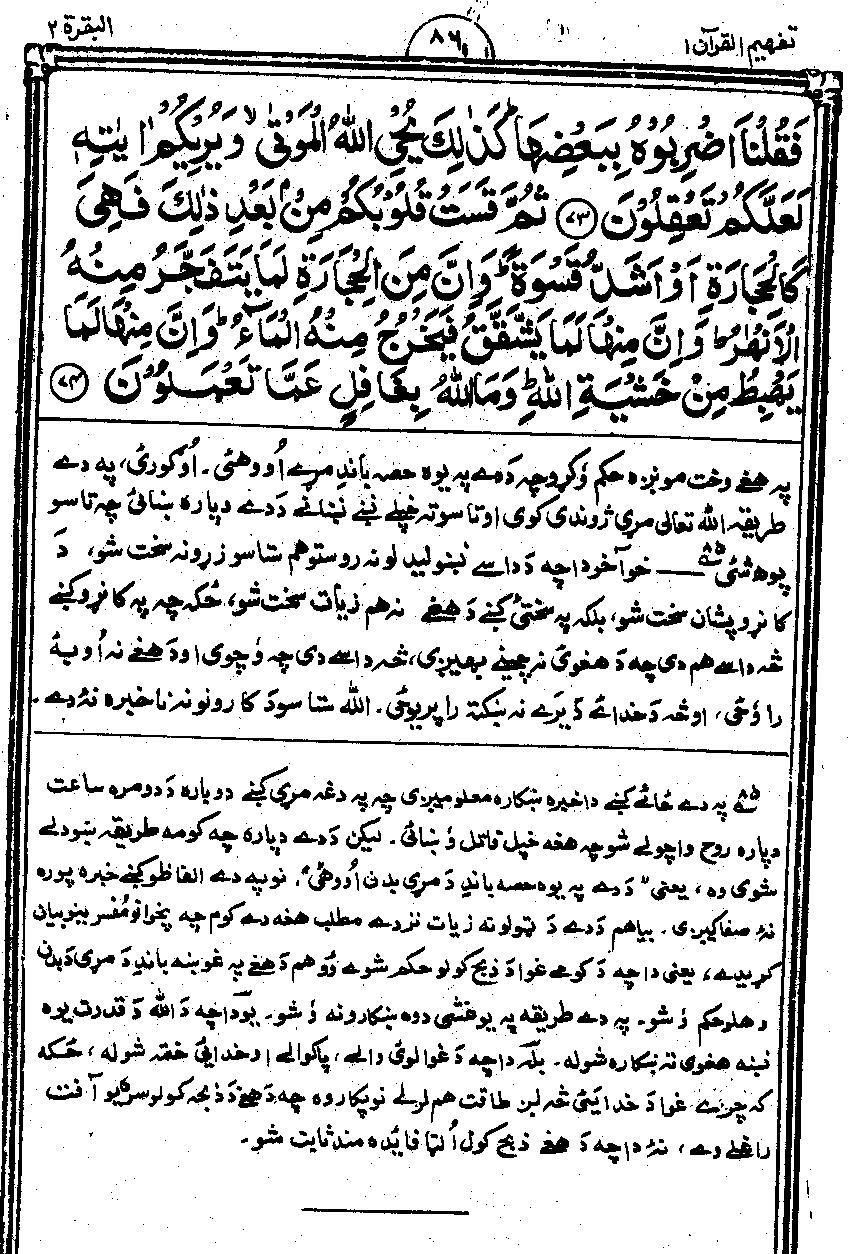 تفهيم القرآن ۱
۸۶
البقرة ۲
فَقُلْنَا اضْرِبُوْهُ بِبَعْضِهَا ؕ كَذٰلِكَ يُحْيِ اللّٰهُ الْمَوْتٰى ۙ وَيُرِيْكُمْ اٰيٰتِهٖ
لَعَلَّكُمْ تَعْقِلُوْنَ ﴿۷۳﴾ ثُمَّ قَسَتْ قُلُوْبُكُمْ مِّنْۢ بَعْدِ ذٰلِكَ فَهِىَ
كَالْحِجَارَةِ اَوْ اَشَدُّ قَسْوَةً ؕ وَاِنَّ مِنَ الْحِجَارَةِ لَمَا يَتَفَجَّرُ مِنْهُ
الْاَنْهٰرُ ؕ وَاِنَّ مِنْهَا لَمَا يَشَّقَّقُ فَيَخْرُجُ مِنْهُ الْمَآءُ ؕ وَاِنَّ مِنْهَا لَمَا
يَهْبِطُ مِنْ خَشْيَةِ اللّٰهِ ؕ وَمَا اللّٰهُ بِغَافِلٍ عَمَّا تَعْمَلُوْنَ ﴿۷۴﴾
په هغے وخت مونږه حکم وَکړو چه دَدے په یوه حصه باندِ مړے اُووهئ. اُوګورئ، په دے
طریقه الله تعالی مړی ژوندی کوی او تاسو ته خپلے نښے نښانے دَدے دپاره ښائی چه تاسو
پوهه شئ ــــ خو آخر دا چه دَ داسے نښو لیدلو نه روستو هم ستاسو زړونه سخت شو، دَ
کاڼرو پشان سخت شو، بلکه په سختئ کښے دَ هغے نه هم زیات سخت شو، ځکه چه په کاڼرو کښے
څه داسے هم دی چه دَ هغوئ نه چینے بهیږی، څه داسے دی چه وَچوی او دَ هغے نه اُوبهٔ
راوَځی، او څه دَ خدائے دَ یَرے نه ښکته راپریوځی. الله ستاسو دَ کارونو نه ناخبره نهٔ دے.
په دے ځائے کښے دا خبره ښکاره معلومیږی چه په دغه مړی کښے دوباره دَ دومره ساعت
دپاره روح واچولے شو چه هغه خپل قاتل وَښائی. لیکن دَدے دپاره چه کومه طریقه ښودلے
شوی وه، یعنی "دَدے په یوه حصه باندِ دَ مړی بدن اُووهئ"، نو په دے الفاظو کښے خبره پوره
نهٔ صفا کیږی. بیا هم دَدے دَ ټولو نه زیات نزدے مطلب هغه دے کوم چه پخوانو مُفسرینو بیان
کړیدے، یعنی دا چه دَ کومے غوا دَ ذبح کولو حکم شوے وو هم دَ هغے په غوښه باندِ دَ مړی دَ بدن
وهلو حکم وَ شو. په دے طریقه په یو فشی دوه ښکارونه وَ شو. یو دا چه دَ الله دَ قدرت یوه
نښه هغوی ته ښکاره شوله. بله دا چه دَ غوا لوئ والے، پاکوالے او خدایئ ختمه شوله، ځکه
که چرے غوا دَ خدایئ څه لږ طاقت هم لرلے نو پکار وه چه دَ هغے دَ ذبحه کولو سره یو آفت
راغلے وے، نهٔ دا چه دَ هغے ذبح کول اُلټا فائده مند ثابت شو.